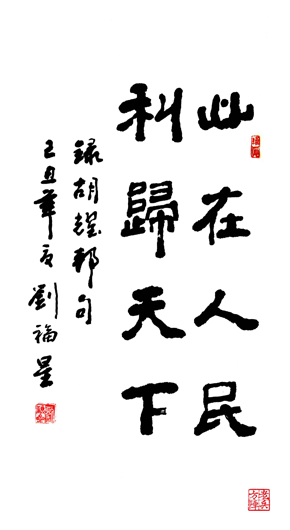 心在人民
利歸天下
録胡耀邦句
己丑年夏劉福星